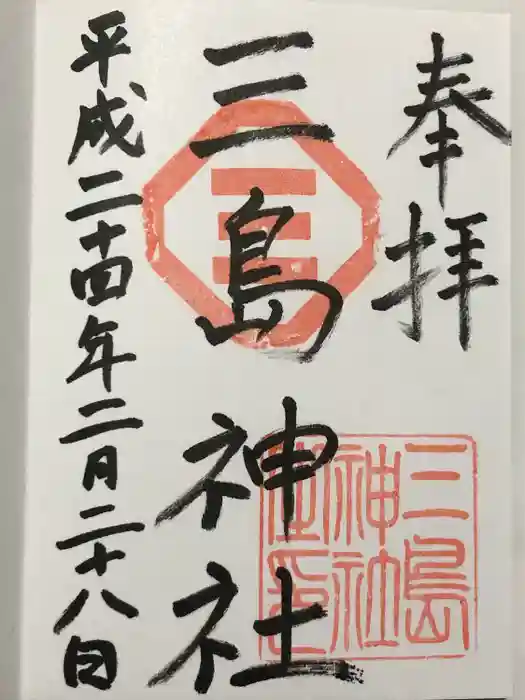 奉拝
三島神社
平成二十四年二月二十八日
三島
神社
御印